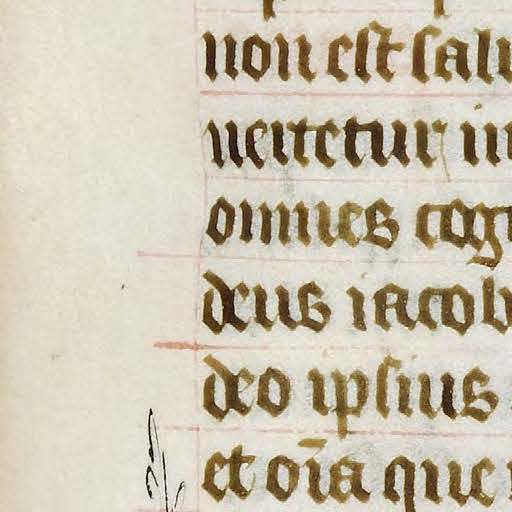 non est salu
uertetur in
omnes cog
deus iacob
deo ipsius
et oīa que